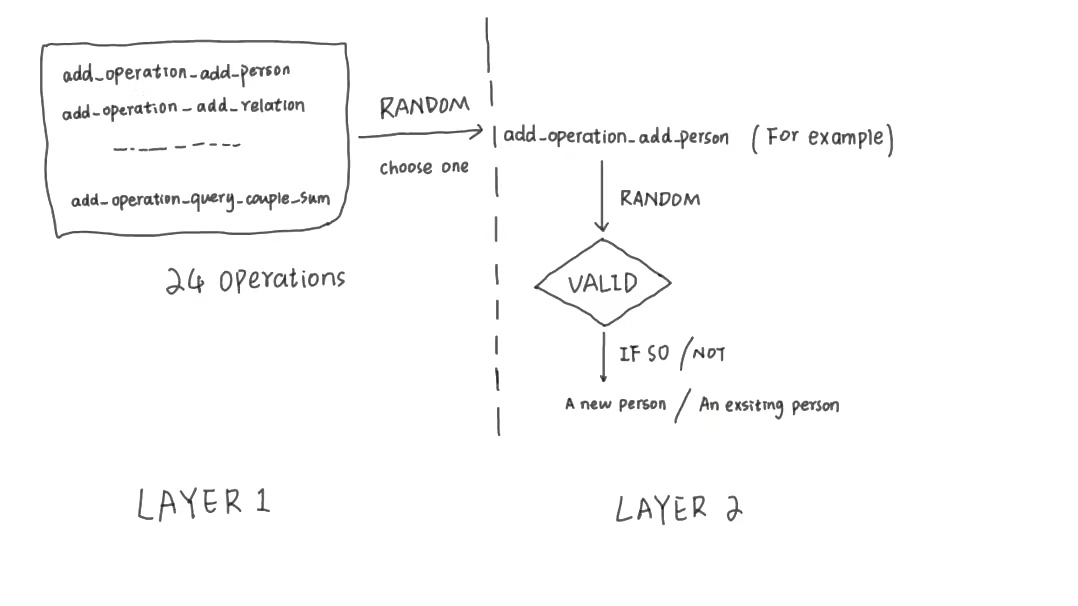 add_operation_add_person
add_operation_add_relation
add_operation_query_couple_sum
24 operations
RANDOM
choose one
add_operation_add_person (For example)
RANDOM
VALID
IF SO / NOT
A new person / An exsiting person
LAYER 1
LAYER 2